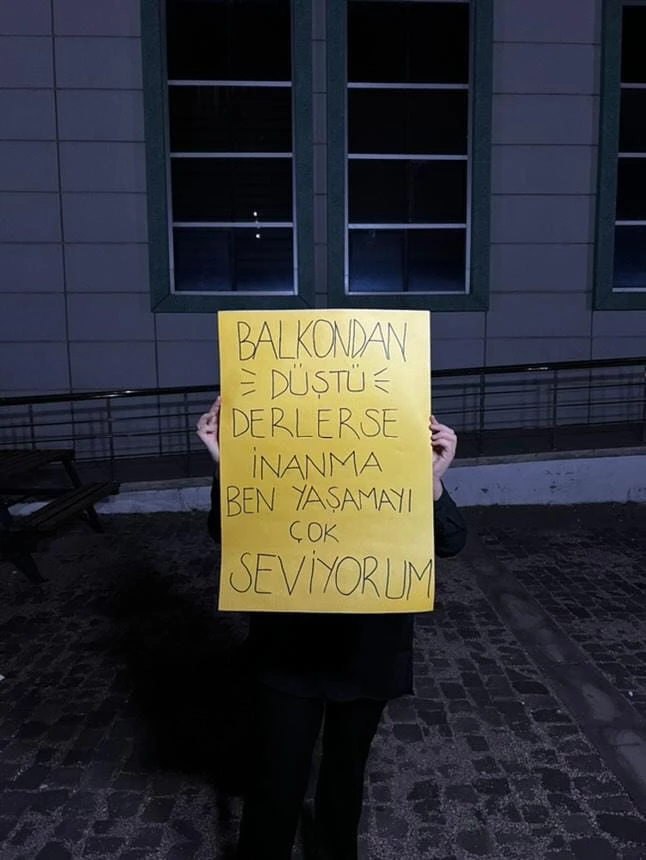 BALKONDAN
DÜŞTÜ
DERLERSE
İNANMA
BEN YAŞAMAYI
ÇOK
SEVİYORUM